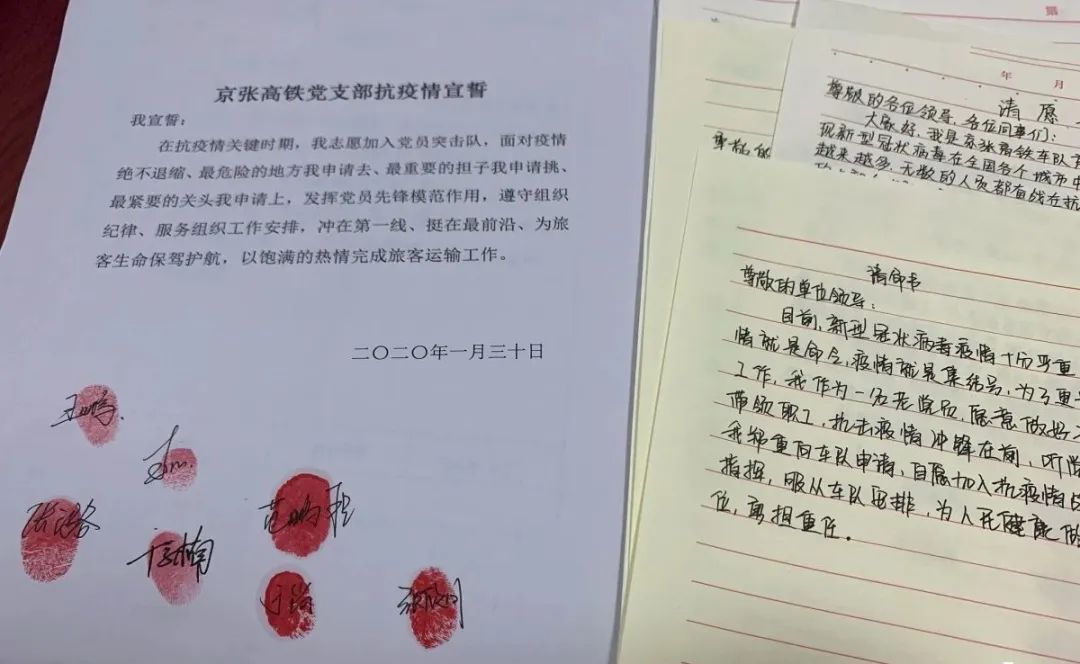 京张高铁党支部抗疫情宣誓
我宣誓：
在抗疫情关键时期，我志愿加入党员突击队，面对疫情
绝不退缩、最危险的地方我申请去、最重要的担子我申请挑、
最紧要的关头我申请上，发挥党员先锋模范作用，遵守组织
纪律、服务组织工作安排，冲在第一线、挺在最前沿、为旅
客生命保驾护航，以饱满的热情完成旅客运输工作。
二〇二〇年一月三十日
王鹏
范鹏程
第
年 月
请愿
尊敬的各位领导、各位同事们：
大家好，我是京张高铁车队
现新型冠状病毒在全国各个城市
越来越多，无数的人员都奋战在抗
请命书
尊敬的单位领导：
目前，新型冠状病毒疫情十分严重
情就是命令，疫情就是集结号，为了更
工作，我作为一名老党员，愿意做好
带领职工，抗击疫情冲锋在前，听党
我郑重向车队申请，自愿加入抗疫情
指挥，服从车队安排，为人民健康做
位，勇担重任。